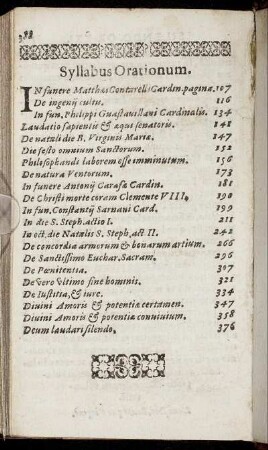 Syllabus Orationum.
IN funere Matthæi Contarelli Cardin. pagina. 107
De ingenij cultu. 116
In fun. Philippi Guastauillani Cardinalis. 134
Laudatio sapientis & æqui senatoris. 141
De natali die B. Virginis Mariæ. 147
Die festo omnium Sanctorum. 152
Philosophandi laborem esse imminutum. 156
De natura Ventorum. 173
In funere Antonij Carafæ Cardin. 181
De Christi morte coram Clemente VIII. 190
In fun. Constantij Sarnani Card. 199
In die S. Steph. actio I. 211
In oct. die Natalis S. Steph. act II. 242
De concordia armorum & bonarum artium. 266
De Sanctissimo Euchar. Sacram. 296
De Pœnitentia. 307
De vero vltimo fine hominis. 321
De Iustitia, & iure. 334
Diuini Amoris & potentiæ certamen. 347
Diuini Amoris & potentiæ conuiuium. 358
Deum laudari silendo. 376